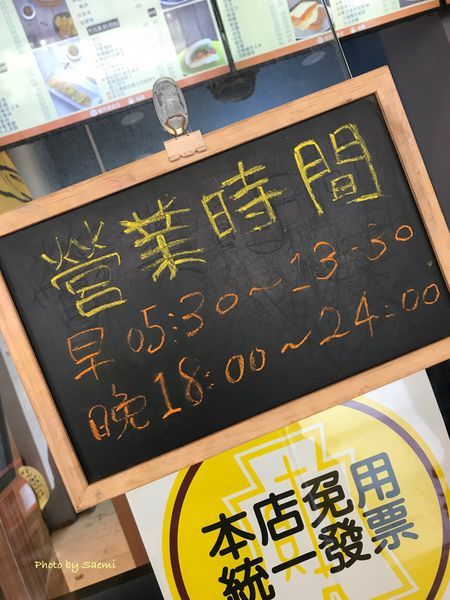 營業時間
早 05:30～13:30
晚 18:00～24:00
本店免用
統一發票
Photo by Saemi